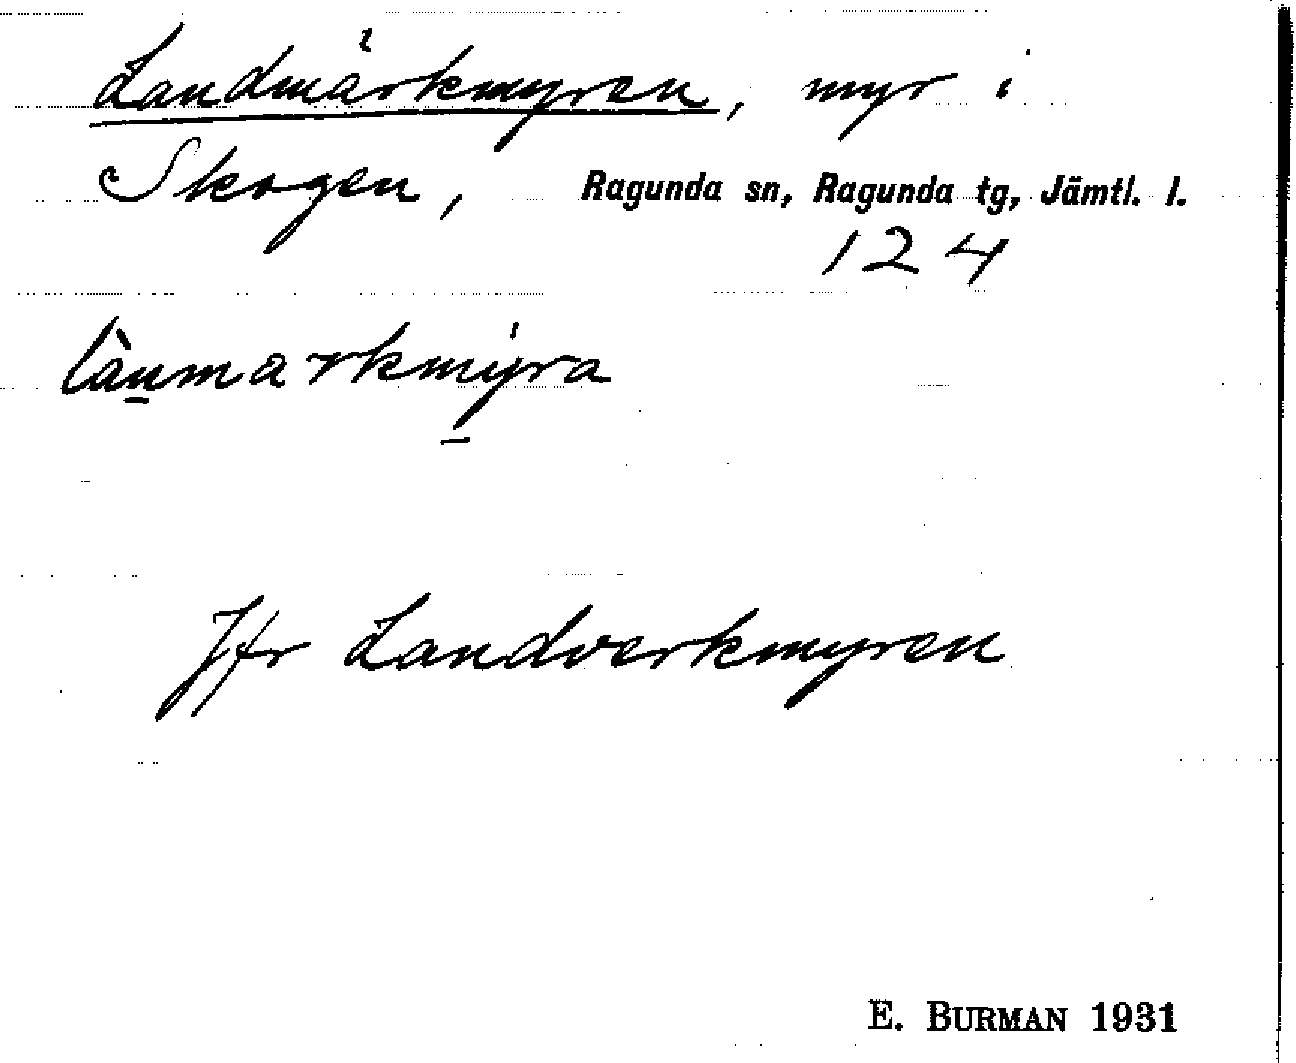 Landmärkmyren, myr i
Skogen, Ragunda sn, Ragunda tg, Jämtl. l.
124
lànmarkmýra
Jfr Landverkmyren
E. BURMAN 1931